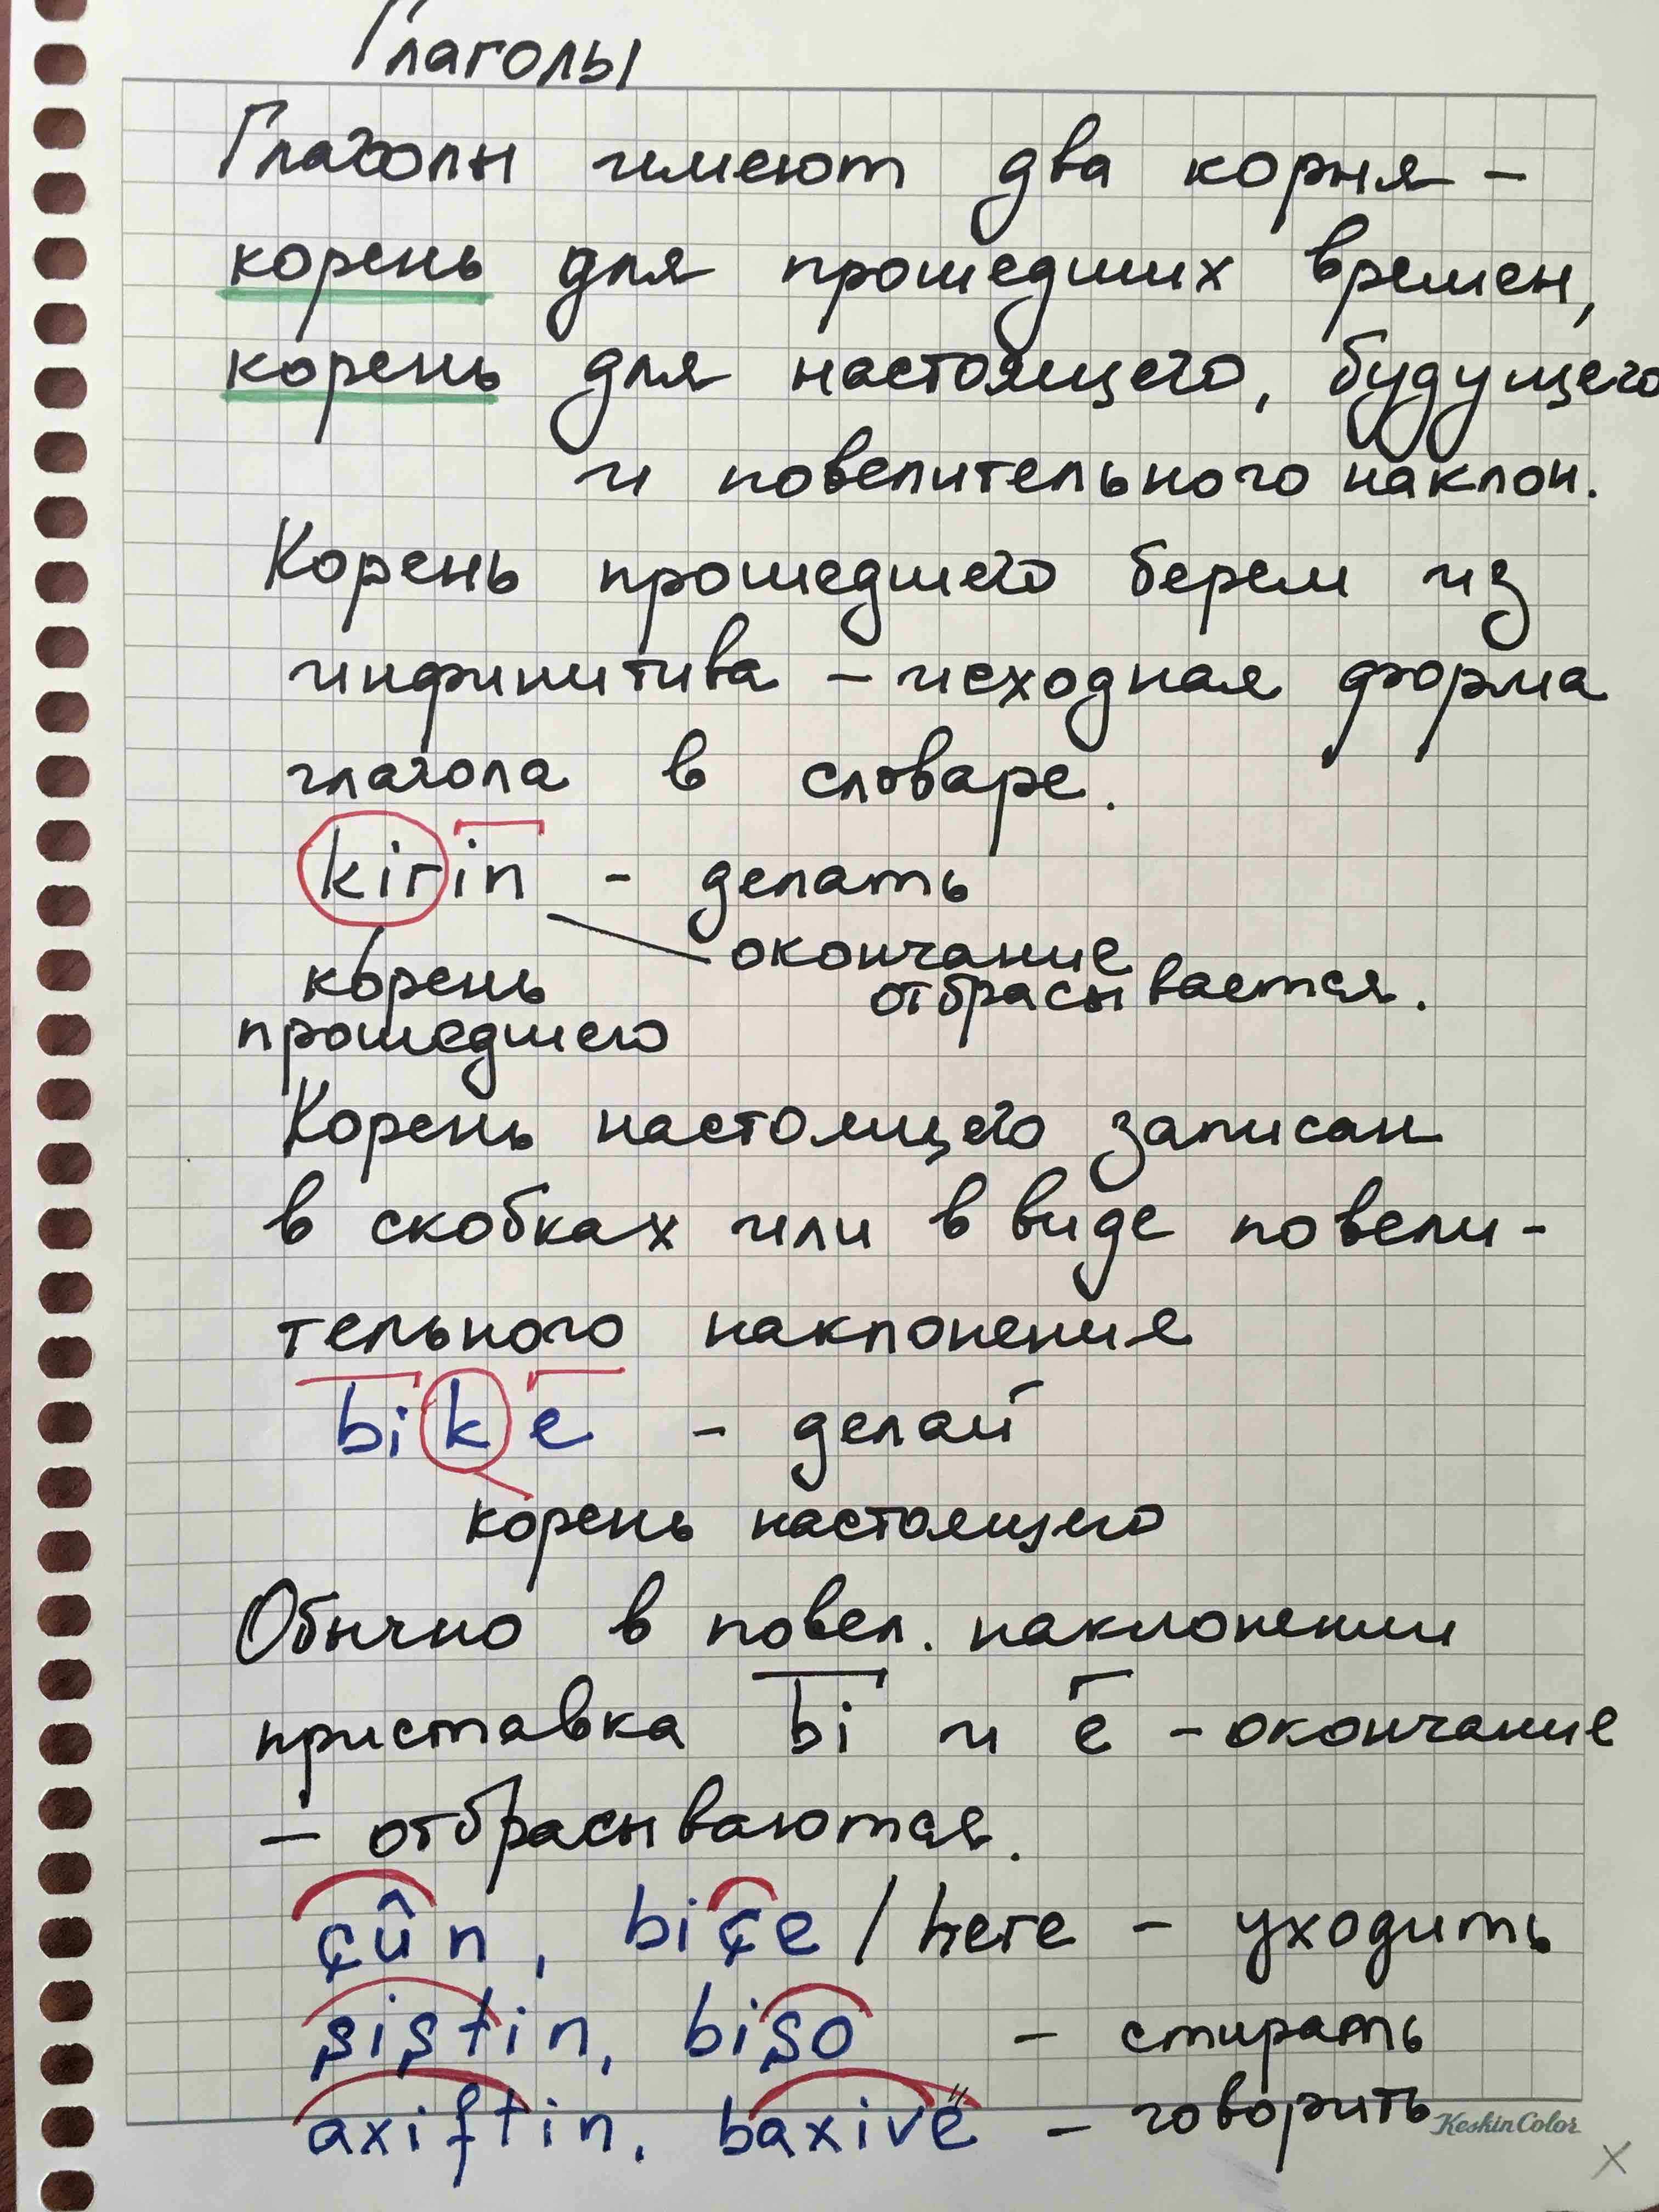 Глаголы
Глаголы имеют два корня –
корень для прошедших времен,
корень для настоящего, будущего
и повелительного наклон.
Корень прошедшего берем из
инфинитива – исходная форма
глагола в словаре.
kirin – делать
окончание
отбрасывается.
корень
прошедшего
Корень настоящего записан
в скобках или в виде повели-
тельного наклонение
bike – делай
корень настоящего
Обычно в повел. наклонении
приставка bi и e – окончание
– отбрасываются.
çûn, biçe / here – уходить
şiştin, bişo – стирать
axiftin, baxivë – говорить
KeskinColor